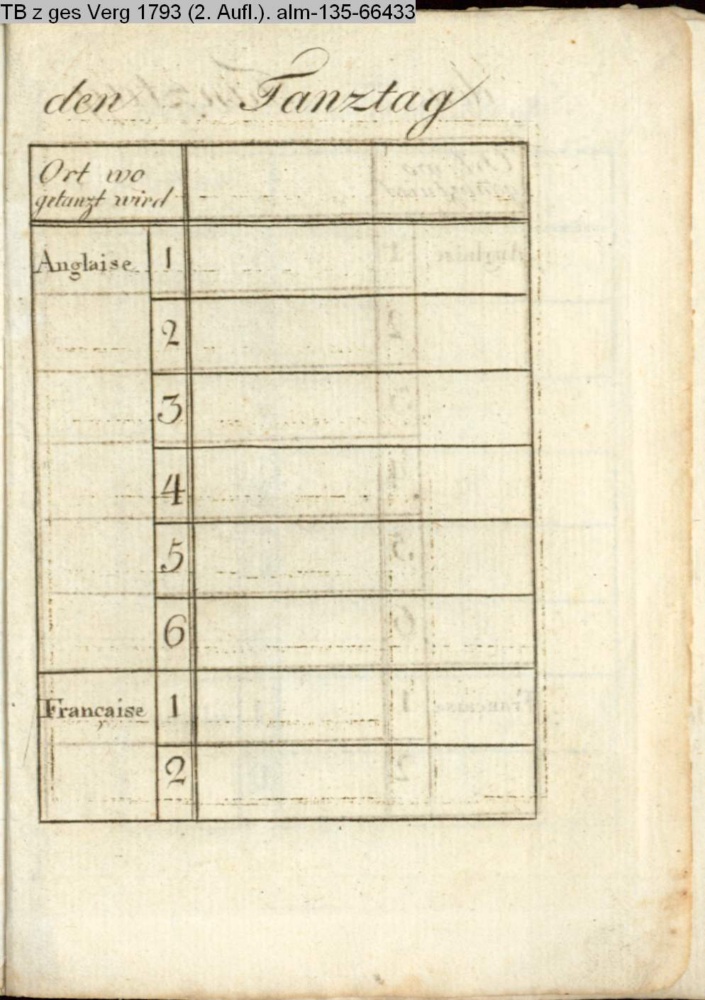 TB z ges Verg 1793 (2. Aufl.). alm-135-66433
den Tanztag
Ort wo
getanzt wird
Anglaise 1
2
3
4
5
6
Française 1
2